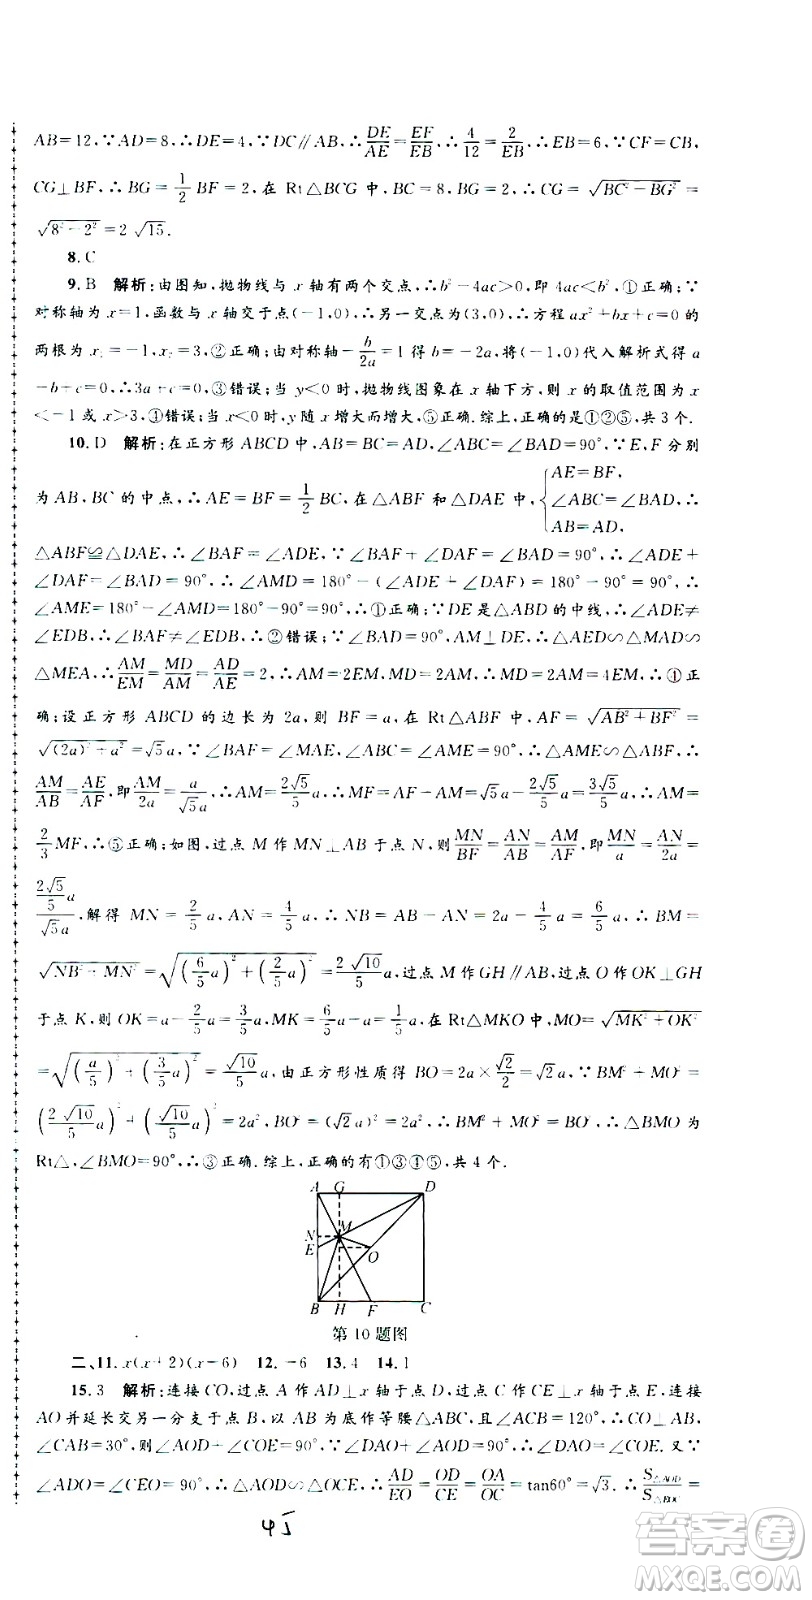 AB=12,∵AD=8,∴DE=4,∵DC∥AB,∴DE/AE=EF/EB,∴4/12=2/EB,∴EB=6,∵CF=CB,
CG⊥BF,∴BG=1/2 BF=2,在Rt△BCG中,BC=8,BG=2,∴CG=√(BC²-BG²)=
√(8²-2²)=2√15.
8.C
9.B 解析:由图知,抛物线与x轴有两个交点,∴b²-4ac>0,即4ac<b²,①正确;∵
对称轴为x=1,函数与x轴交于点(-1,0),∴另一交点为(3,0),∴方程ax²+bx+c=0的
两根为x₁=-1,x₂=3,②正确;由对称轴-b/2a=1得b=-2a,将(-1,0)代入解析式得a
-b+c=0,∴3a+c=0,③错误;当y<0时,抛物线图象在x轴下方,则x的取值范围为
x<-1或x>3,④错误;当x<0时,y随x增大而增大,⑤正确.综上,正确的是①②⑤,共3个.
10.D 解析:在正方形ABCD中,AB=BC=AD,∠ABC=∠BAD=90°,∵E,F分别
为AB,BC的中点,∴AE=BF=1/2 BC,在△ABF和△DAE中,{AE=BF, ∠ABC=∠BAD,∴ AB=AD,
△ABF≌△DAE,∴∠BAF=∠ADE,∵∠BAF+∠DAF=∠BAD=90°,∴∠ADE+
∠DAF=∠BAD=90°,∴∠AMD=180°-(∠ADE+∠DAF)=180°-90°=90°,∴
∠AME=180°-∠AMD=180°-90°=90°,∴①正确;∵DE是△ABD的中线,∴∠ADE≠
∠EDB,∴∠BAF≠∠EDB,∴②错误;∵∠BAD=90°,AM⊥DE,∴△AED∽△MAD∽
△MEA,∴AM/EM=MD/AM=AD/AE=2,∴AM=2EM,MD=2AM,∴MD=4EM,∴④正
确;设正方形ABCD的边长为2a,则BF=a,在Rt△ABF中,AF=√(AB²+BF²)=
√((2a)²+a²)=√5a,∵∠BAF=∠MAE,∠ABC=∠AME=90°,∴△AME∽△ABF,∴
AM/AB=AE/AF,即AM/2a=a/√5a,∴AM=2√5/5 a,∴MF=AF-AM=√5a-2√5/5 a=3√5/5 a,∴AM=
2/3 MF,∴⑤正确;如图,过点M作MN⊥AB于点N,则MN/BF=AN/AB=AM/AF,即MN/a=AN/2a=
(2√5/5 a)/(√5a),解得MN=2/5 a,AN=4/5 a,∴NB=AB-AN=2a-4/5 a=6/5 a,∴BM=
√(NB²+MN²)=√((6/5 a)²+(2/5 a)²)=2√10/5 a,过点M作GH∥AB,过点O作OK⊥GH
于点K,则OK=a-2/5 a=3/5 a,MK=6/5 a-a=1/5 a,在Rt△MKO中,MO=√(MK²+OK²)
=√((a/5)²+(3/5 a)²)=√10/5 a,由正方形性质得BO=2a×√2/2=√2a,∵BM²+MO²=
(2√10/5 a)²+(√10/5 a)²=2a²,BO²=(√2a)²=2a²,∴BM²+MO²=BO²,∴△BMO为
Rt△,∠BMO=90°,∴③正确.综上,正确的有①③④⑤,共4个.
A G D
N M
E O
B H F C
第10题图
二、11.x(x+2)(x-6) 12.-6 13.4 14.1
15.3 解析:连接CO,过点A作AD⊥x轴于点D,过点C作CE⊥x轴于点E,连接
AO并延长交另一分支于点B,以AB为底作等腰△ABC,且∠ACB=120°,∴CO⊥AB,
∠CAB=30°,则∠AOD+∠COE=90°,∵∠DAO+∠AOD=90°,∴∠DAO=∠COE.又∵
∠ADO=∠CEO=90°,∴△AOD∽△OCE,∴AD/EO=OD/CE=OA/OC=tan60°=√3.∴S△AOD/S△EOC=
45
答案圈
MXQE.COM